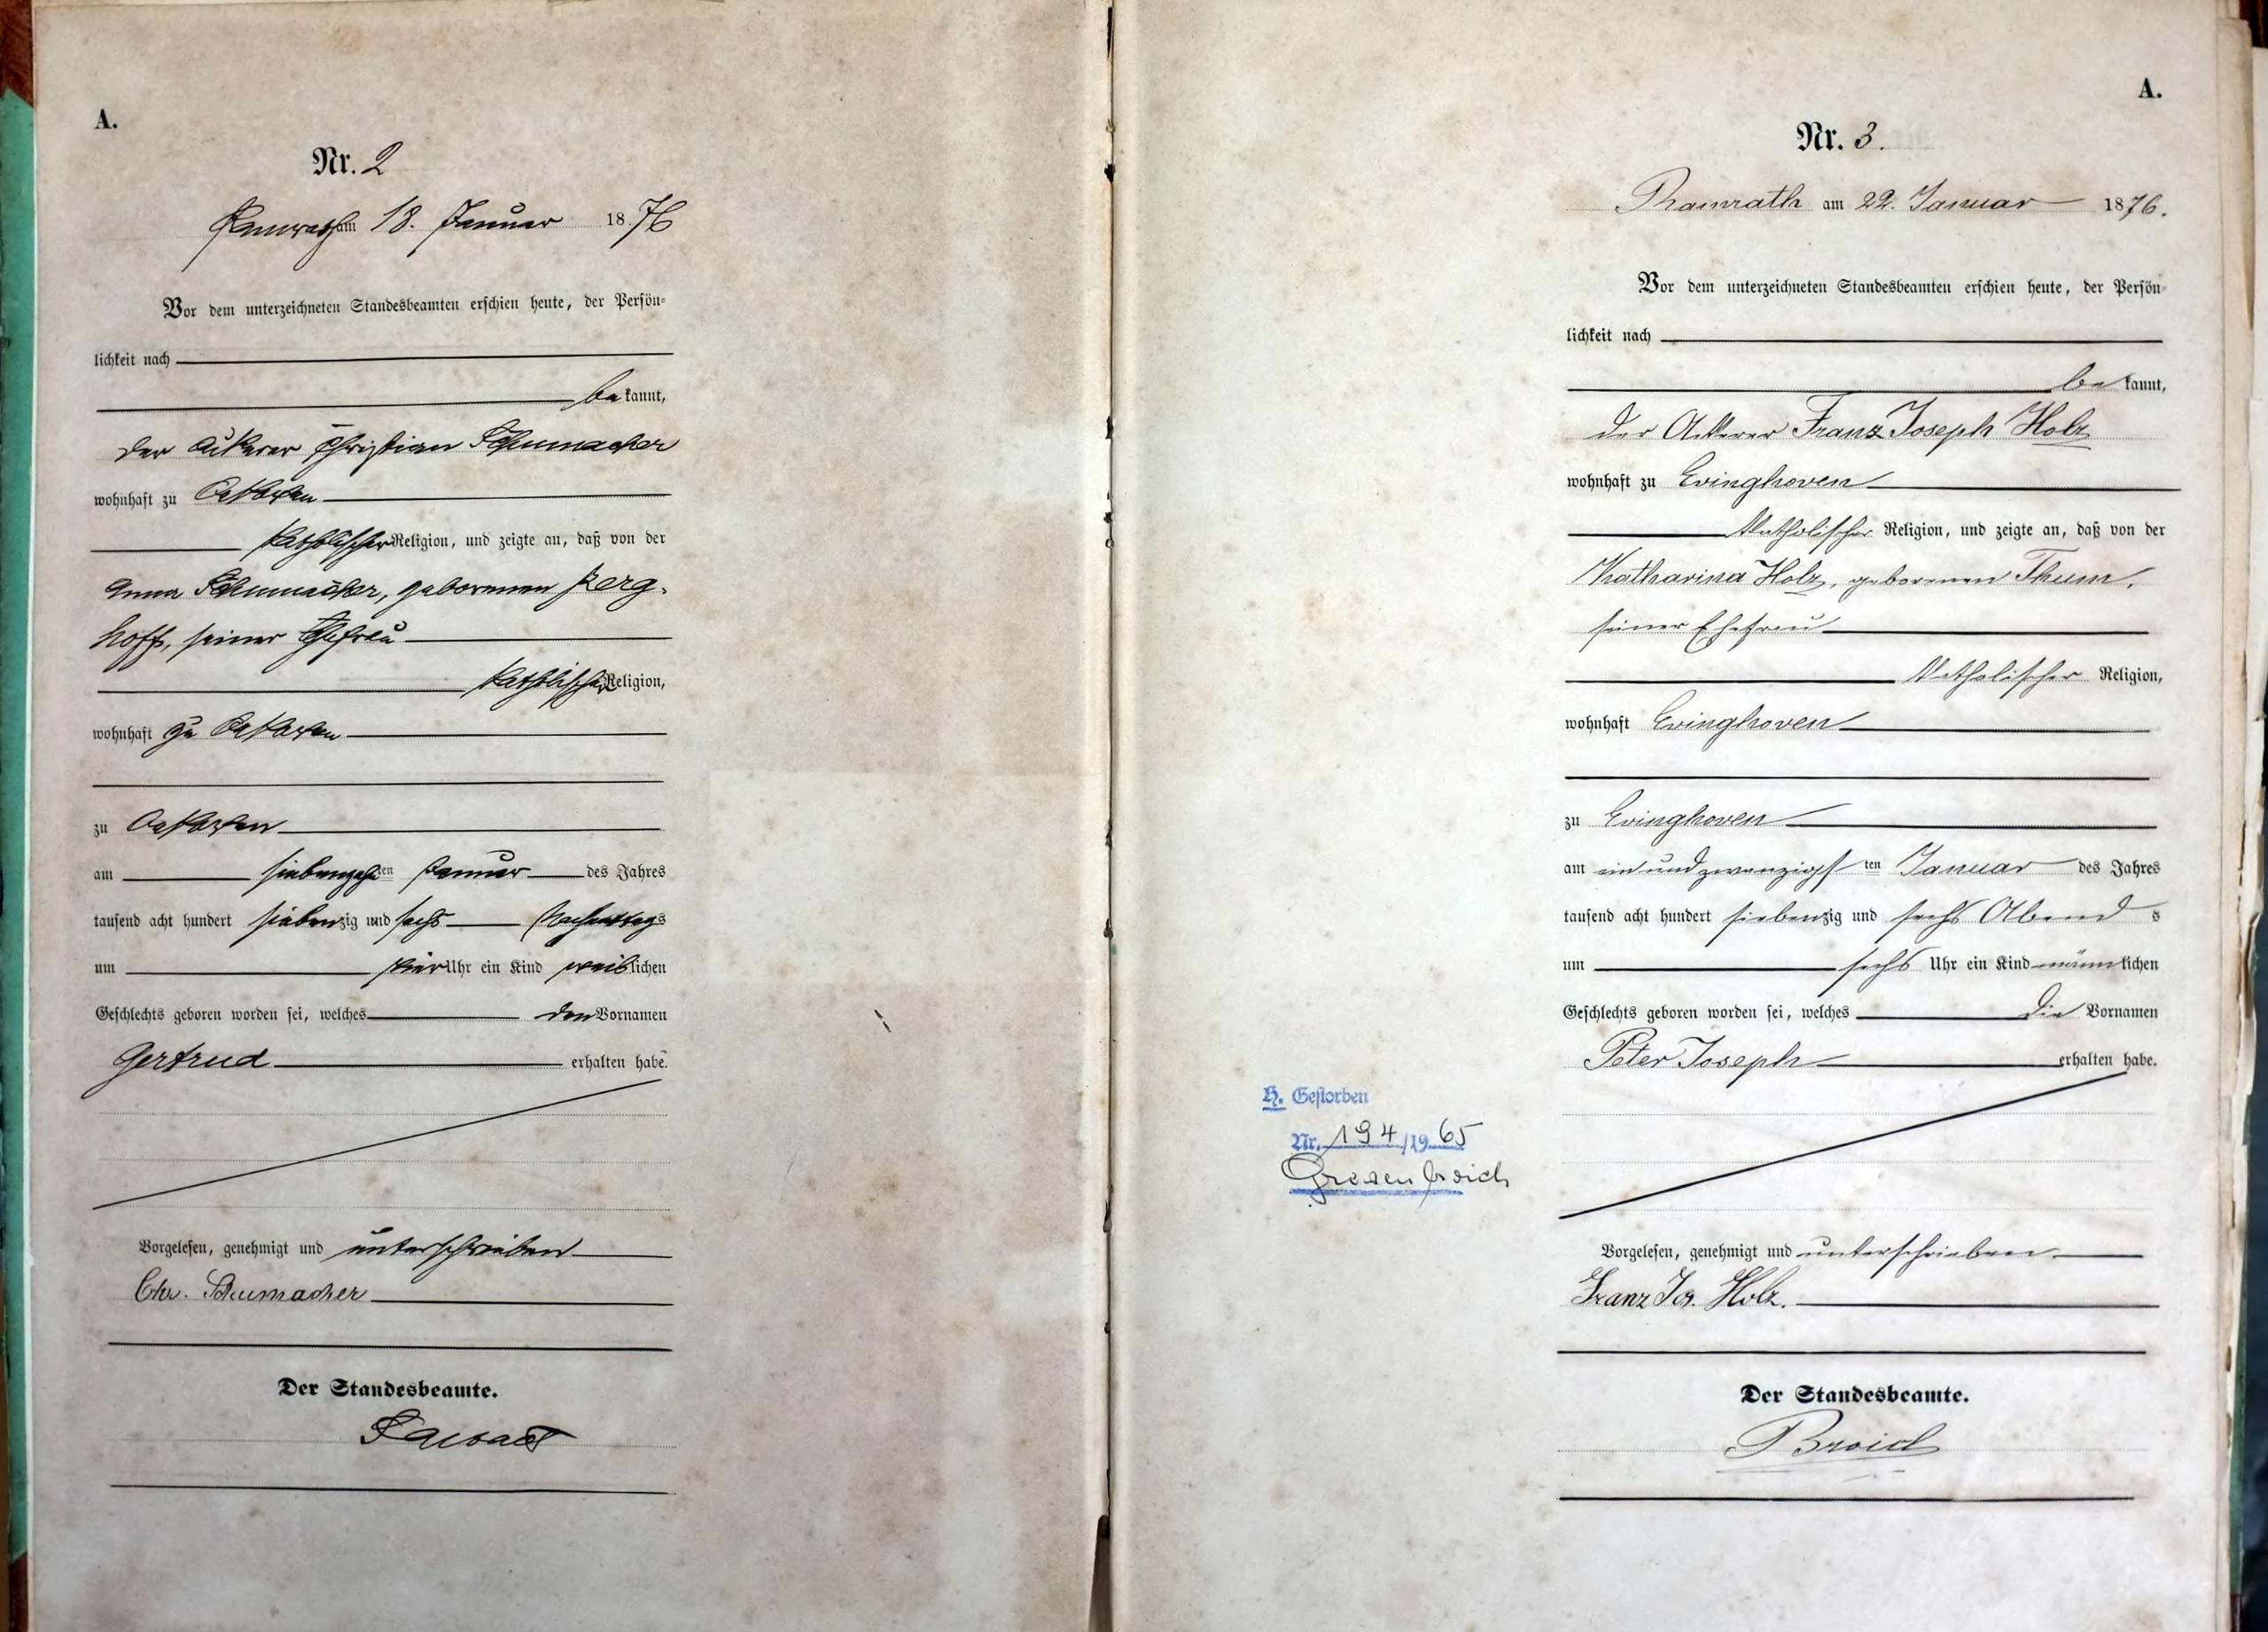 A.
Nr. 2
Ramrath am 18. Januar 1876
Vor dem unterzeichneten Standesbeamten erschien heute, der Persön=
lichkeit nach
bekannt,
der Ackerer Christian Schumacher
wohnhaft zu Oekoven
katholischer Religion, und zeigte an, daß von der
Anna Schumacher, geborenen Berg-
hoff, seiner Ehefrau
katholischer Religion,
wohnhaft zu Oekoven
zu Oekoven
am siebenzehnten Januar des Jahres
tausend acht hundert siebenzig und sechs Nachmittags
um vier Uhr ein Kind weiblichen
Geschlechts geboren worden sei, welches den Vornamen
Gertrud erhalten habe.
Vorgelesen, genehmigt und unterschrieben
Chr. Schumacher
Der Standesbeamte.
A.
Nr. 3.
Ramrath am 22. Januar 1876.
Vor dem unterzeichneten Standesbeamten erschien heute, der Persön=
lichkeit nach
bekannt,
der Ackerer Franz Joseph Holz
wohnhaft zu Evinghoven
katholischer Religion, und zeigte an, daß von der
Katharina Holz, geborenen Thum,
seiner Ehefrau
katholischer Religion,
wohnhaft Evinghoven
zu Evinghoven
am ein und zwanzigsten Januar des Jahres
tausend acht hundert siebenzig und sechs Abends
um sechs Uhr ein Kind männlichen
Geschlechts geboren worden sei, welches die Vornamen
Peter Joseph erhalten habe.
H. Gestorben
Nr. 194/1965
Grevenbroich
Vorgelesen, genehmigt und unterschrieben.
Franz Jos. Holz.
Der Standesbeamte.
Broich